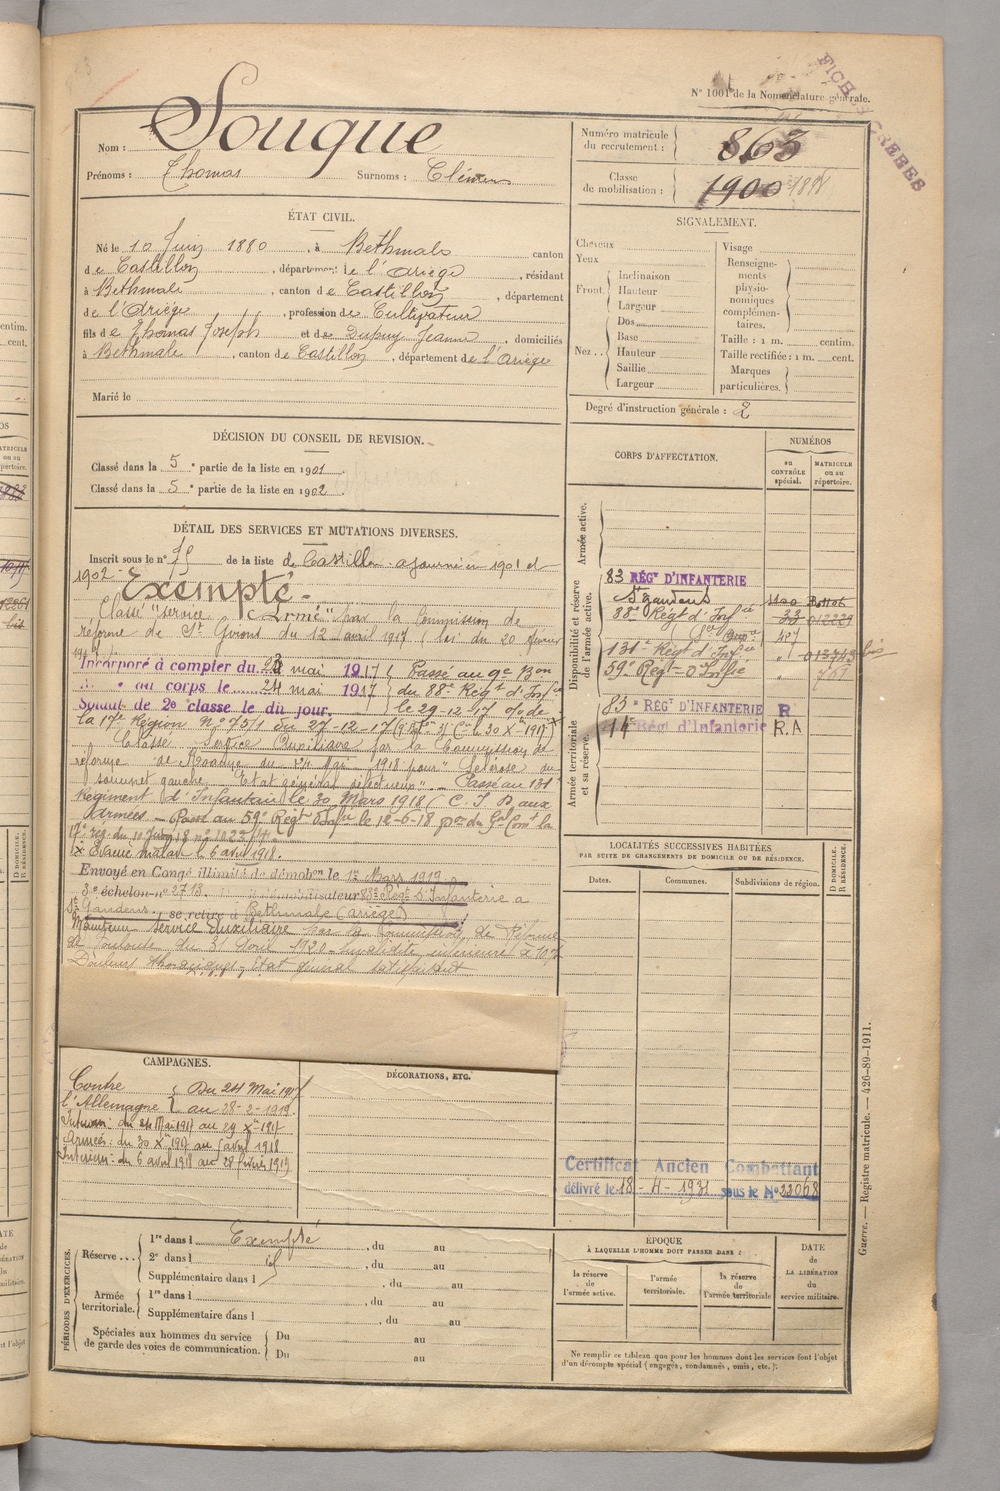 N° 1001 de la Nomenclature générale.
FICHES CRÉÉES
Nom : Souque
Prénoms : Thomas Surnoms : Clément
Numéro matricule du recrutement : 863
Classe de mobilisation : 1900 1898
ÉTAT CIVIL.
Né le 10 Juin 1880, à Bethmale canton
de Castillon, département de l'Ariège, résidant
à Bethmale, canton de Castillon, département
de l'Ariège, profession de Cultivateur
fils de Thomas Joseph et de Dupuy Jeanne, domiciliés
à Bethmale, canton de Castillon, département de l'Ariège
Marié le
SIGNALEMENT.
Cheveux
Yeux
Front. Inclinaison
Hauteur
Largeur
Nez... Dos
Base
Hauteur
Saillie
Largeur
Visage
Renseignements physionomiques complémentaires.
Taille : 1 m. centim.
Taille rectifiée : 1 m. cent.
Marques particulières.
Degré d'instruction générale : 2
DÉCISION DU CONSEIL DE REVISION.
Classé dans la 5e partie de la liste en 1901.
Classé dans la 5e partie de la liste en 1902.
DÉTAIL DES SERVICES ET MUTATIONS DIVERSES.
Inscrit sous le n° 75 de la liste de Castillon ajourné en 1901 et
1902 - Exempté -
Classé "service Armé" par la Commission de
réforme de St Girons du 12 avril 1917 (loi du 20 février
Incorporé à compter du 24 mai 1917 Passé au 9e Bon
au corps le 24 mai 1917 du 88e Régt d'Infie
Soldat de 2e classe le dit jour. le 29-12-17 o/o de
la 17e Région n° 7571 du 27-12-17
Classé Service Auxiliaire par la Commission de
réforme de Roanne du 24 Mai 1918 pour "Sclérose du
sommet gauche. Etat général défectueux". Passé au 131e
Régiment d'Infanterie le 30 Mars 1918 (C. I. D aux
Armées - Passé au 59e Régt d'Infie le 12-6-18
X Evacué malade le 6 avril 1918.
Envoyé en Congé illimité de démobon le 1er Mars 1919.
3e échelon n° 2718 démobilisateur 83e Régt d'Infanterie à
St Gaudens. se retire à Bethmale (Ariège)
Maintenu Service Auxiliaire par la Commission de Réforme
de Toulouse du 31 1920 Invalidité inférieure à 10 %
Douleurs thoraciques, état général satisfaisant
CORPS D'AFFECTATION.
NUMÉROS
au CONTRÔLE spécial.
MATRICULE ou au répertoire.
Armée active.
Disponibilité et réserve de l'armée active.
83 RÉGT D'INFANTERIE
St Gaudens
88e Régt d'Infie 33 012229
131e Régt d'Infie 013743 bis
59e Régt d'Infie 761
Armée territoriale et sa réserve.
83e RÉGT D'INFANTERIE R
14e Régt d'Infanterie R.A
LOCALITÉS SUCCESSIVES HABITÉES
PAR SUITE DE CHANGEMENTS DE DOMICILE OU DE RÉSIDENCE.
Dates.
Communes.
Subdivisions de région.
D DOMICILE. R RÉSIDENCE.
Certificat Ancien Combattant
délivré le 18-4-1931 sous le N° 22068
CAMPAGNES.
Contre Du 24 Mai 1917
l'Allemagne au 28-2-1919.
Intérieur : du 24 Mai 1917 au 29 Xbre 1917
Armées : du 30 Xbre 1917 au 5 avril 1918
Intérieur : du 6 avril 1918 au 28 février 1919
DÉCORATIONS, ETC.
PÉRIODES D'EXERCICES.
Réserve... 1re dans l Exempté, du au
2e dans l id, du au
Supplémentaire dans l, du au
Armée territoriale. 1re dans l, du au
Supplémentaire dans l, du au
Spéciales aux hommes du service de garde des voies de communication. Du au
Du au
ÉPOQUE
À LAQUELLE L'HOMME DOIT PASSER DANS :
la réserve de l'armée active.
l'armée territoriale.
la réserve de l'armée territoriale
DATE de LA LIBÉRATION du service militaire.
Ne remplir ce tableau que pour les hommes dont les services font l'objet
d'un décompte spécial (engagés, condamnés, omis, etc.).
Guerre. — Registre matricule. — 426-89-1911.